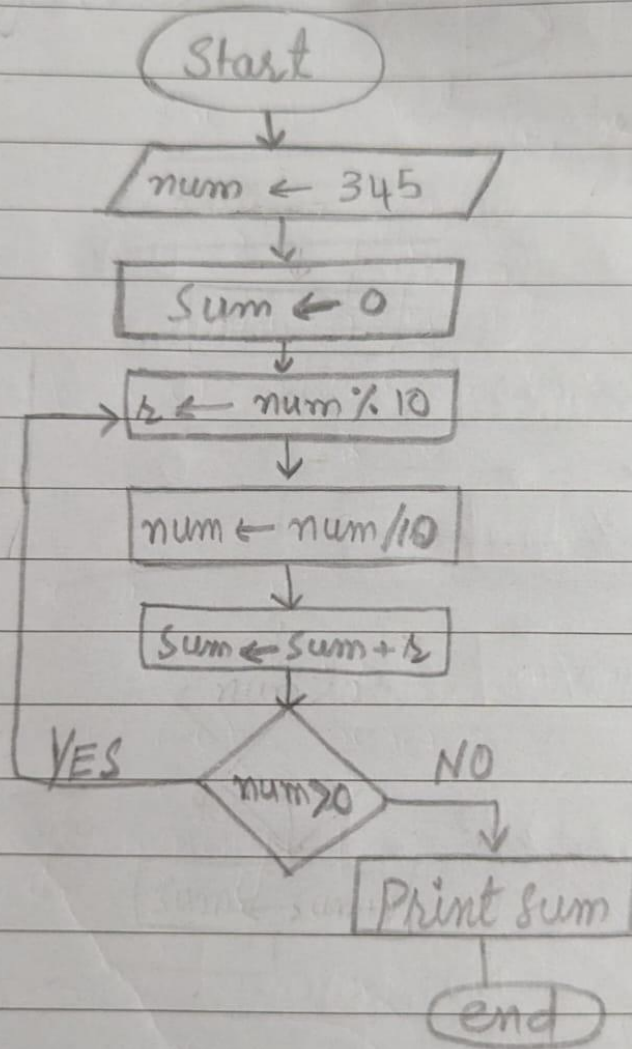 Start
num ← 345
Sum ← 0
r ← num % 10
num ← num/10
Sum ← sum + r
num>0
YES
NO
Print sum
end